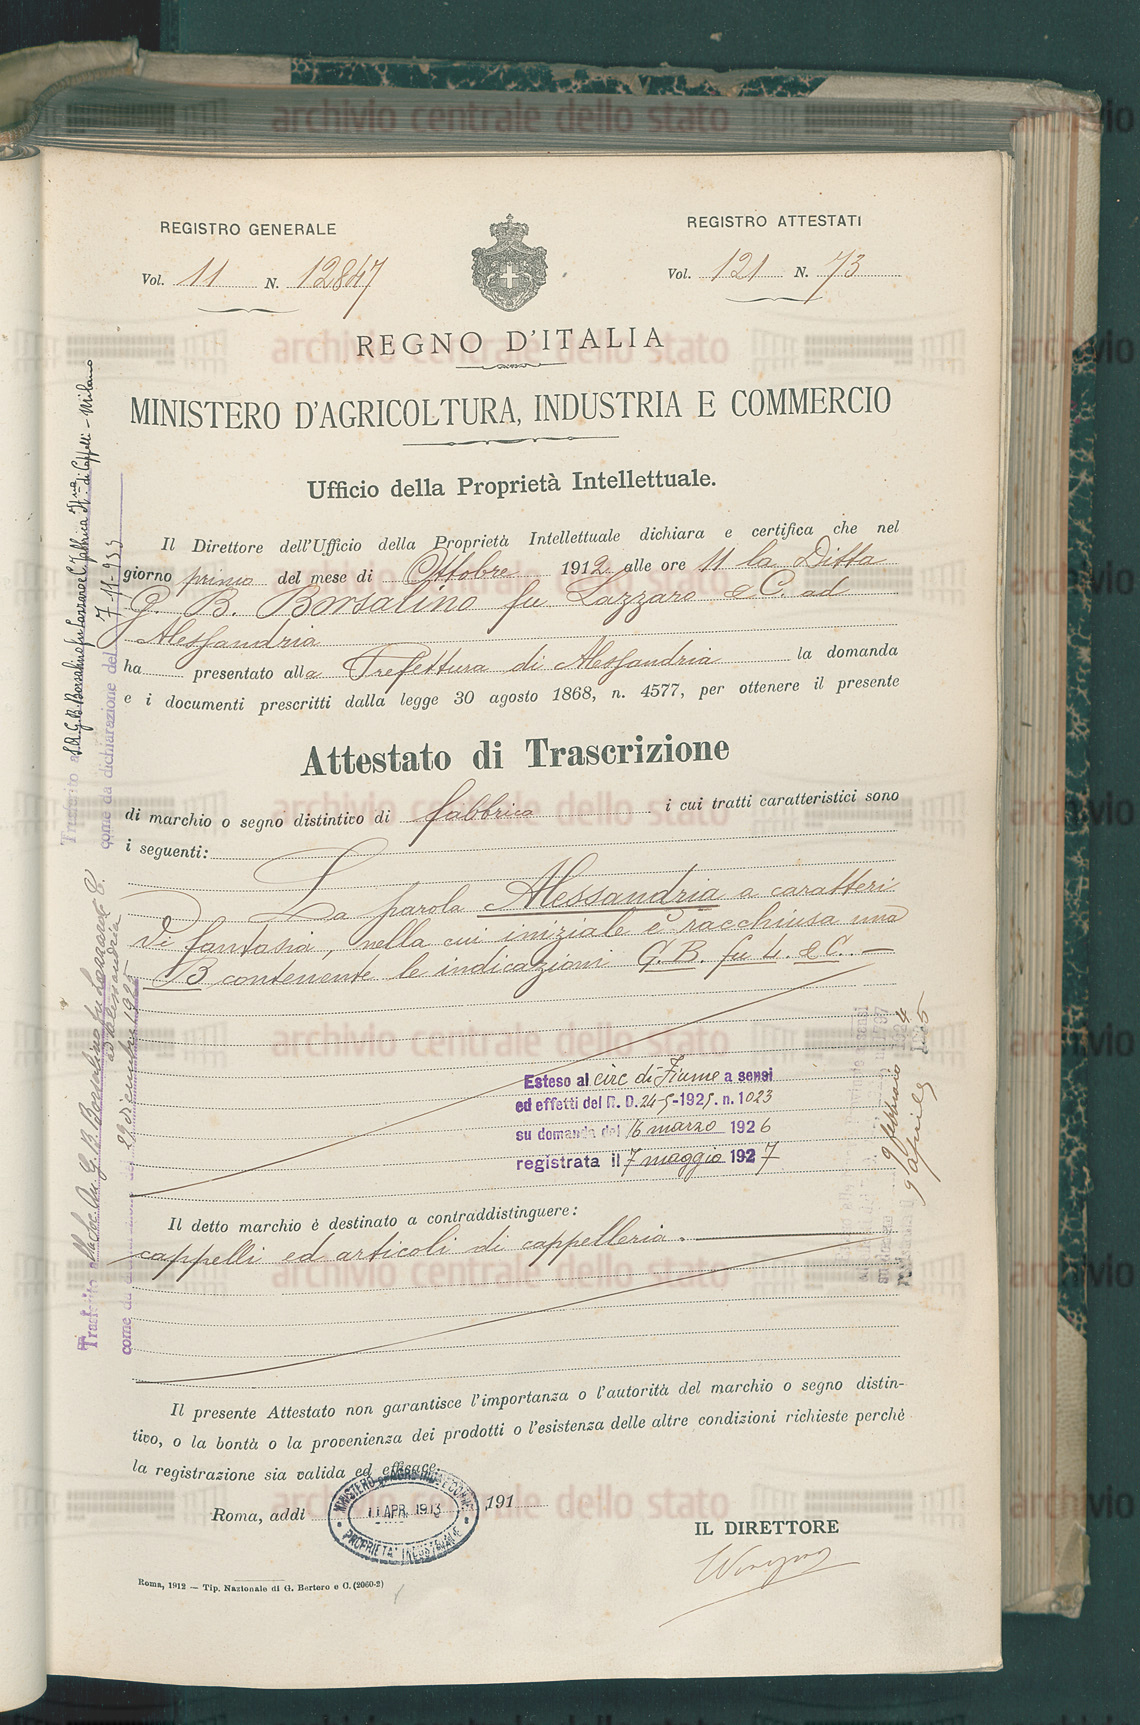 REGISTRO GENERALE
Vol. 11 N. 12847
REGISTRO ATTESTATI
Vol. 121 N. 73
REGNO D'ITALIA
MINISTERO D'AGRICOLTURA, INDUSTRIA E COMMERCIO
Ufficio della Proprietà Intellettuale.
Il Direttore dell'Ufficio della Proprietà Intellettuale dichiara e certifica che nel
giorno primo del mese di Ottobre 1912 alle ore 11 la Ditta
G. B. Borsalino fu Lazzaro e C. ad
Alessandria
ha presentato alla Prefettura di Alessandria la domanda
e i documenti prescritti dalla legge 30 agosto 1868, n. 4577, per ottenere il presente
Attestato di Trascrizione
di marchio o segno distintivo di fabbrica i cui tratti caratteristici sono
i seguenti:
La parola Alessandria a caratteri
di fantasia, nella cui iniziale è racchiusa una
B contenente le indicazioni G. B. fu L. e C. —
Esteso al circ di Fiume a sensi
ed effetti del R. D. 24-5-1925. n. 1023
su domanda del 16 marzo 1926
registrata il 7 maggio 1927
Il detto marchio è destinato a contraddistinguere:
cappelli ed articoli di cappelleria.
Il presente Attestato non garantisce l'importanza o l'autorità del marchio o segno distin-
tivo, o la bontà o la provenienza dei prodotti o l'esistenza delle altre condizioni richieste perchè
la registrazione sia valida ed efficace.
Roma, addì 191
11 APR. 1913
PROPRIETA' INDUSTRIALE
IL DIRETTORE
Roma, 1912 — Tip. Nazionale di G. Bertero e C. (2060-2)
Trasferito a S. A. G. B. Borsalino fu Lazzaro e C. fabbrica di Cappelli - Milano
come da dichiarazione del 7-11-933
Trasferito alla Soc. An. G. B. Borsalino fu Lazzaro e C.
ad Alessandria
come da 29 dicembre 1925
9 febbraio
9 aprile
archivio centrale dello stato